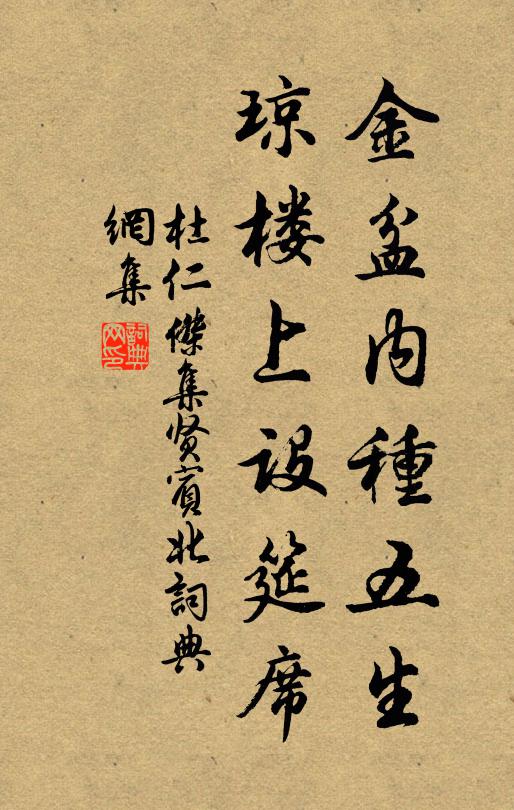 金盆内種五生
琼楼上設筵席
杜仁傑集贤賓北詞典
網集
詞典網印